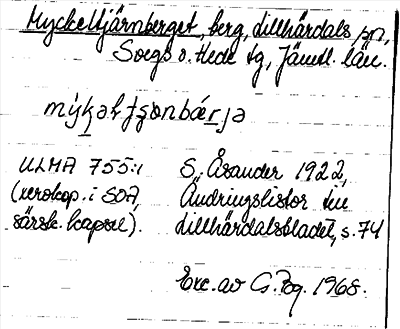 Myckeltjärnberget, berg, Lillhärdals sn,
Svegs o. Hede tg, Jämtl. län.
mỳkəltʂɘnbárjə
ULMA 755:1 S. Åsander 1922,
(xerokop. i SOA, Ändringslistor till
särsk. kapsel). Lillhärdalsbladet, s. 74
Exc. av G. Bg. 1968.